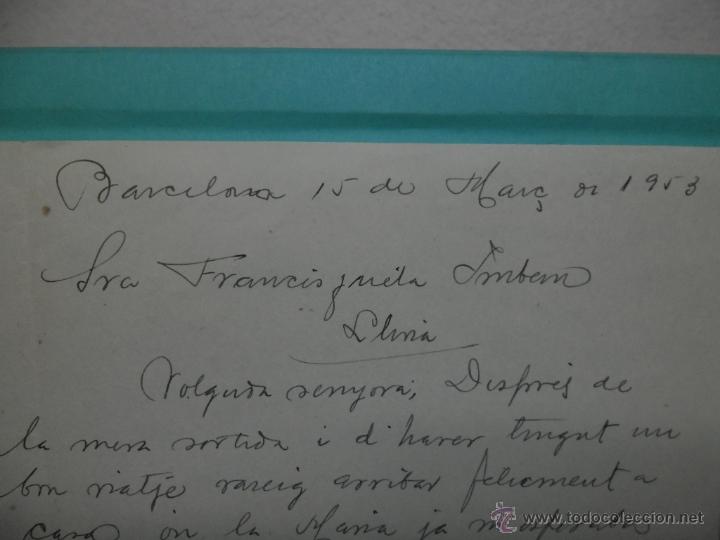 Barcelona 15 de Març de 1953
Sra Francisqueta
Llinà
Volguda senyora, Després de
la meva sortida i d'haver tingut un
bon viatje vareig arribar feliçment a
casa on la Maria ja
todocoleccion
© www.todocoleccion.net